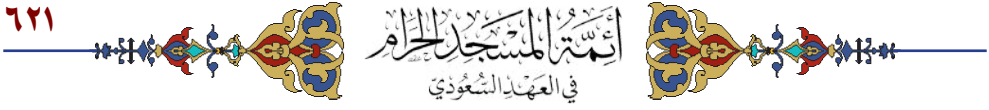 ٦٢١
أَئِمَّةُ المَسْجِدِ الحَرَامِ
في العَهْدِ السُّعُوْدِيّ